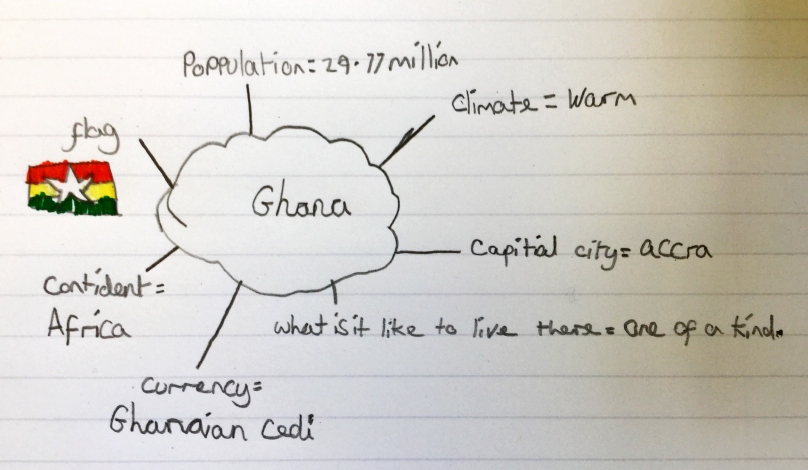 Poppulation = 29.77 million
Climate = Warm
flag
Ghana
Capitial city = accra
Contident =
Africa
what is it like to live there = one of a kind.
currency =
Ghanaian Cedi